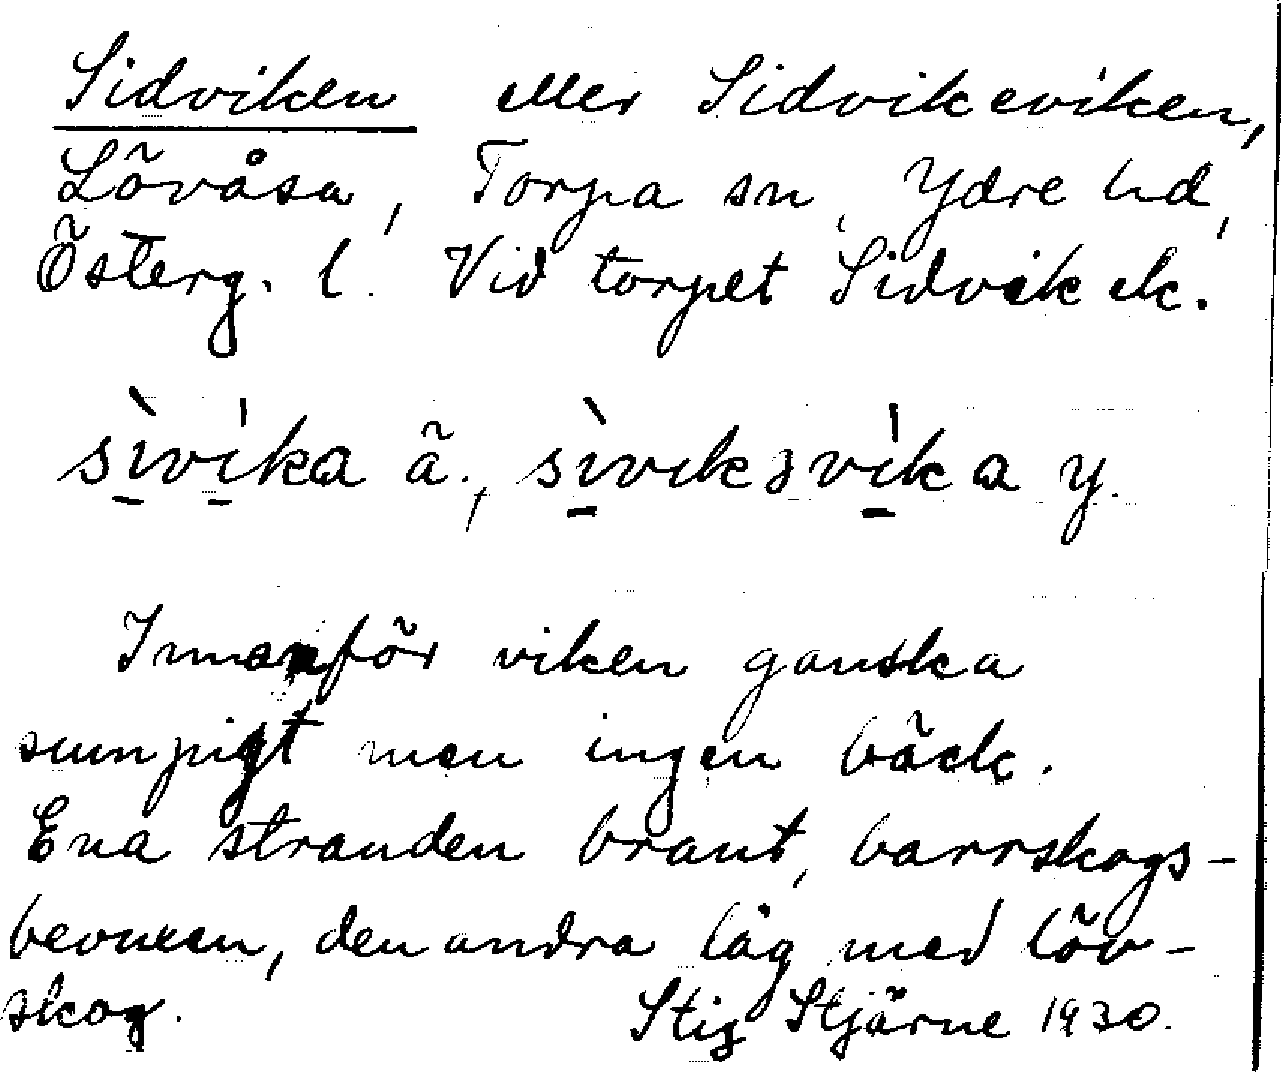 Sidviken eller Sidvikeviken,
Lövåsa, Torpa sn, Ydre hd,
Österg. l. Vid torpet Sidvik ek.
sìvíka ä., sìvikəvíka y.
Innanför viken ganska
sumpigt men ingen bäck.
Ena stranden brant, barrskogs-
bevuxen, den andra låg med löv-
skog. Stig Stjärne 1930.